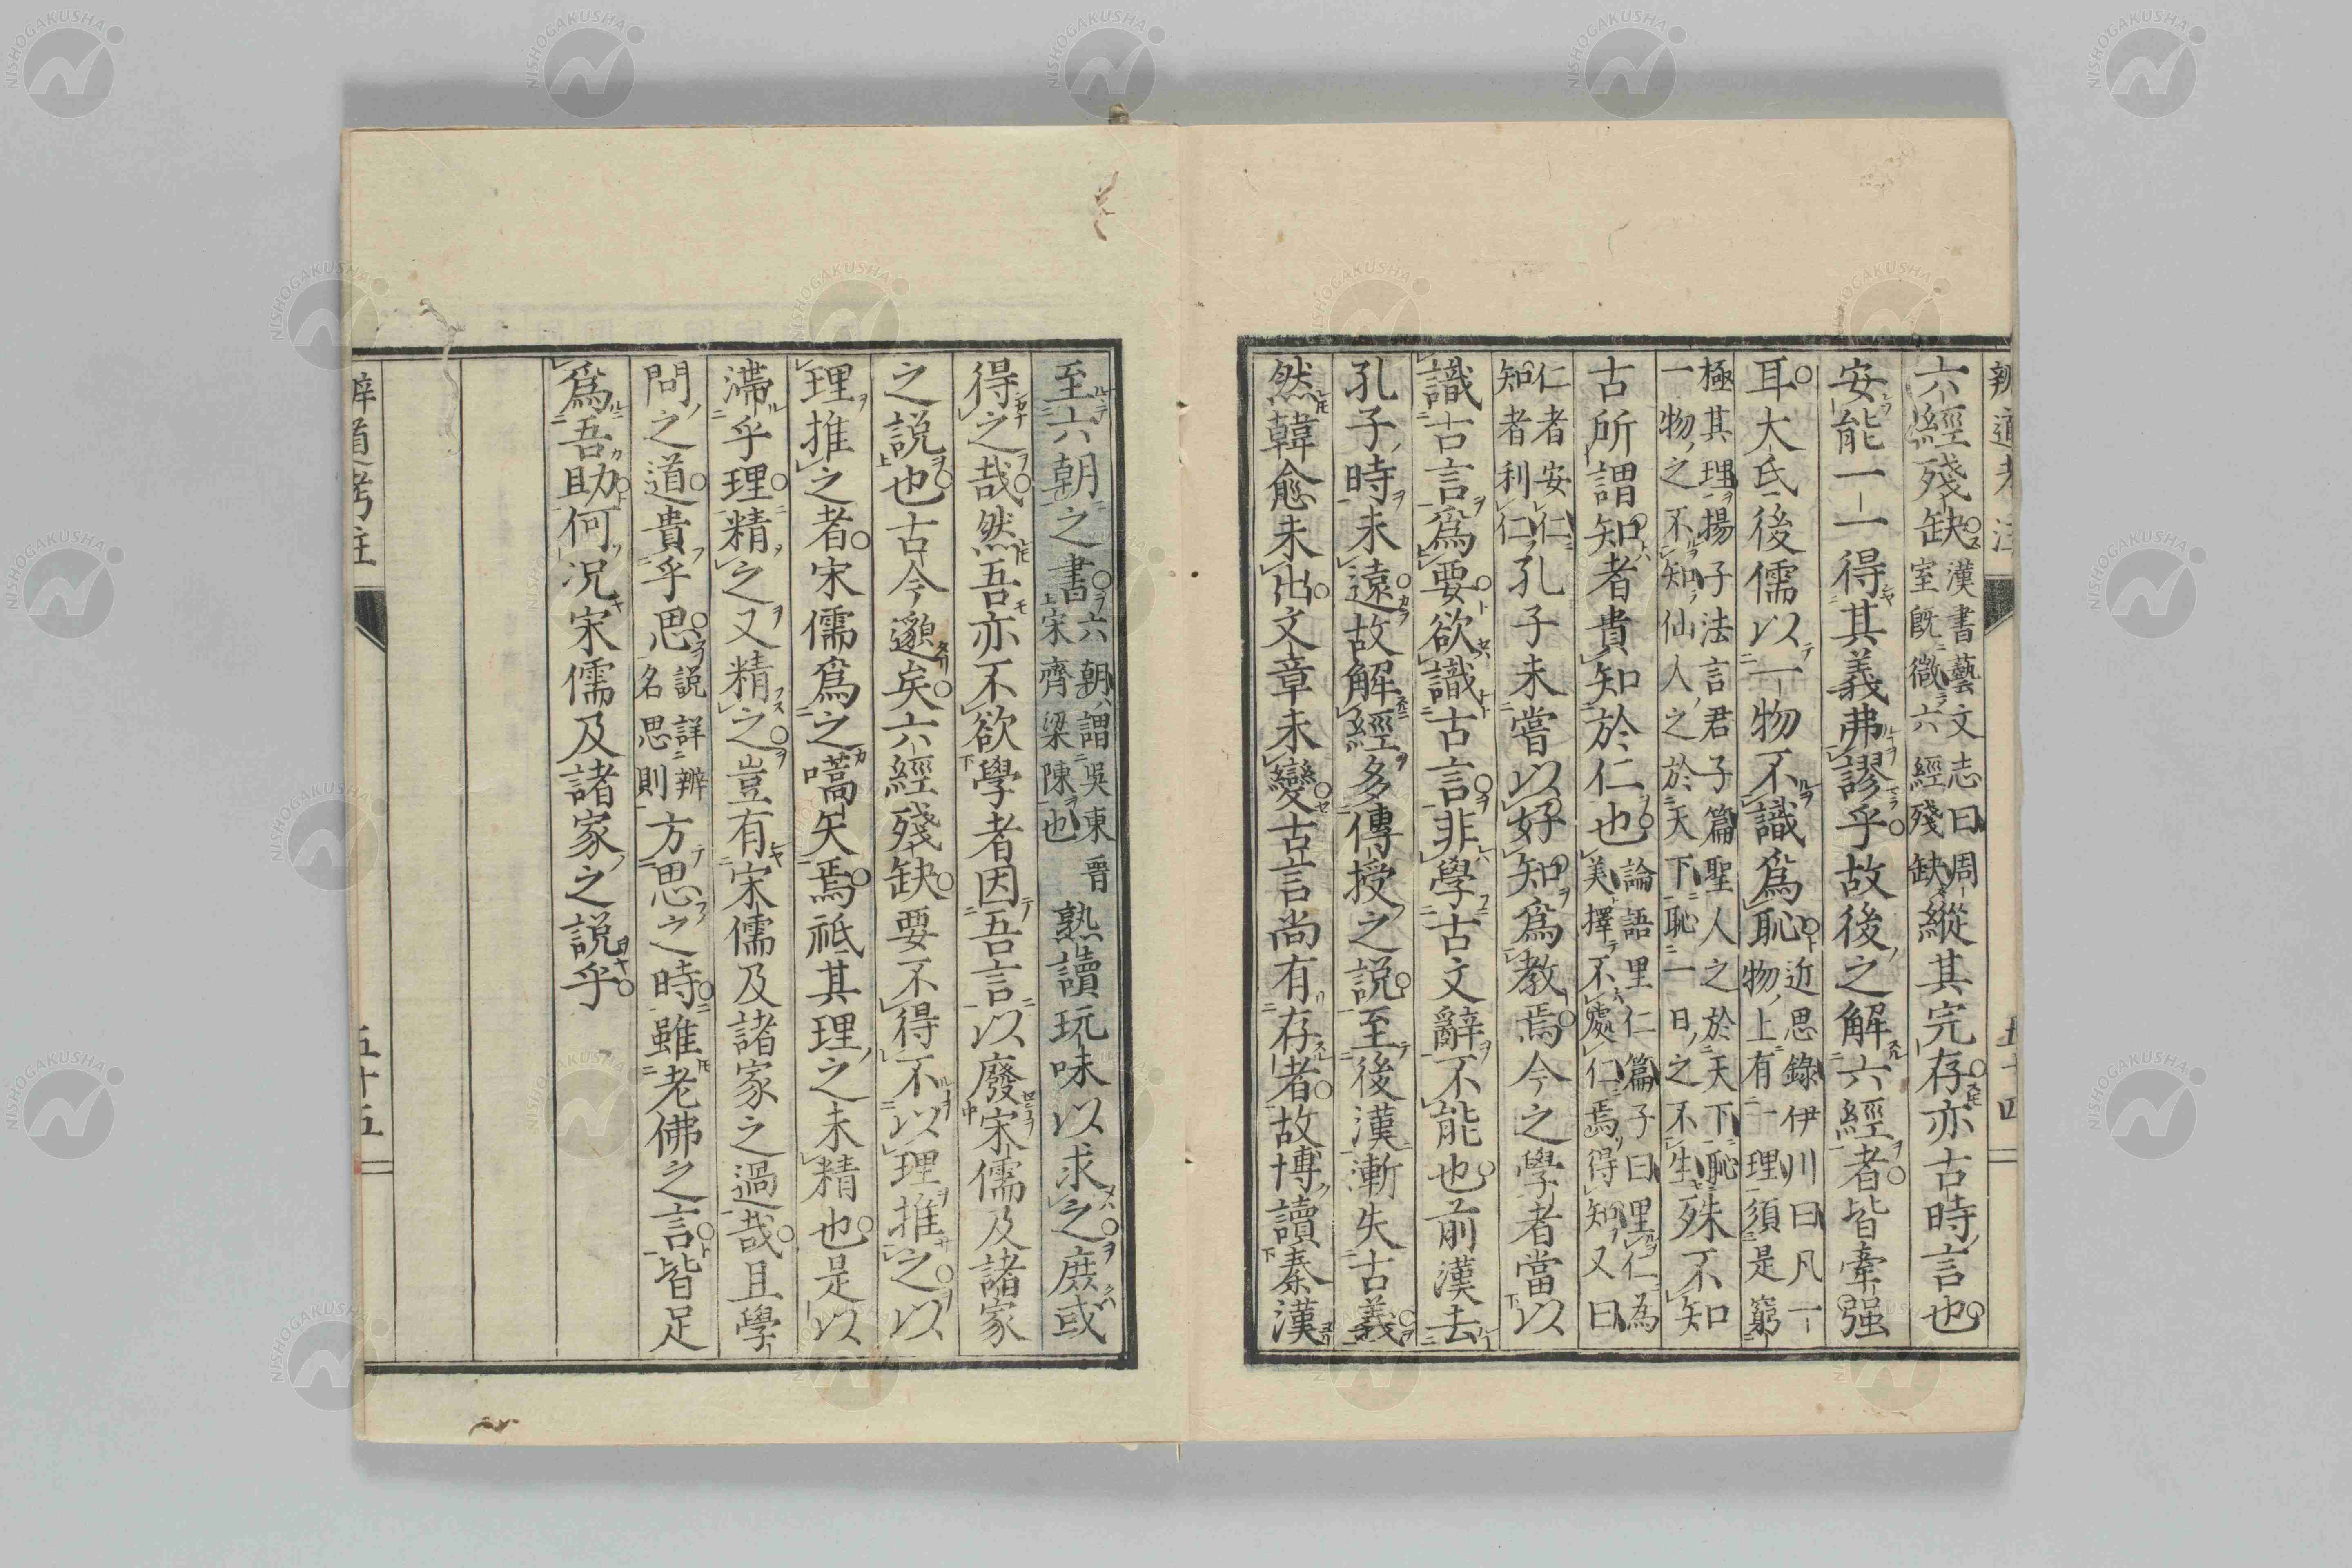 辨道考注
五十四
六經殘缺漢書藝文志曰周室既微六經殘缺縱其完存亦古時言也
安能一一得其義弗謬乎故後之解六經者皆牽强
耳大氐後儒以一物不識爲恥近思錄伊川曰凡一物上有一理須是窮
極其理揚子法言君子篇聖人之於天下恥一物之不知仙人之於天下恥一日之不生殊不知
古所謂知者貴知於仁也論語里仁篇子曰里仁為美擇不處仁焉得知又曰
仁者安仁知者利仁孔子未嘗以好知爲教焉今之學者當以
識古言爲要欲識古言非學古文辭不能也前漢去
孔子時未遠故解經多傳授之說至後漢漸失古義
然韓愈未出文章未變古言尚有存者故博讀秦漢
至六朝之書六朝謂吳東晋宋齊梁陳也熟讀玩味以求之庶或
得之哉然吾亦不欲學者因吾言以廢宋儒及諸家
之説也古今邈矣六經殘缺要不得不以理推之以
理推之者宋儒爲之嚆矢焉祇其理之未精也是以
滯乎理精之又精之豈有宋儒及諸家之過哉且學
問之道貴乎思説詳辨名思則方思之時雖老佛之言皆足
爲吾助何况宋儒及諸家之説乎
辨道考註
五十五
NISHOGAKUSHA